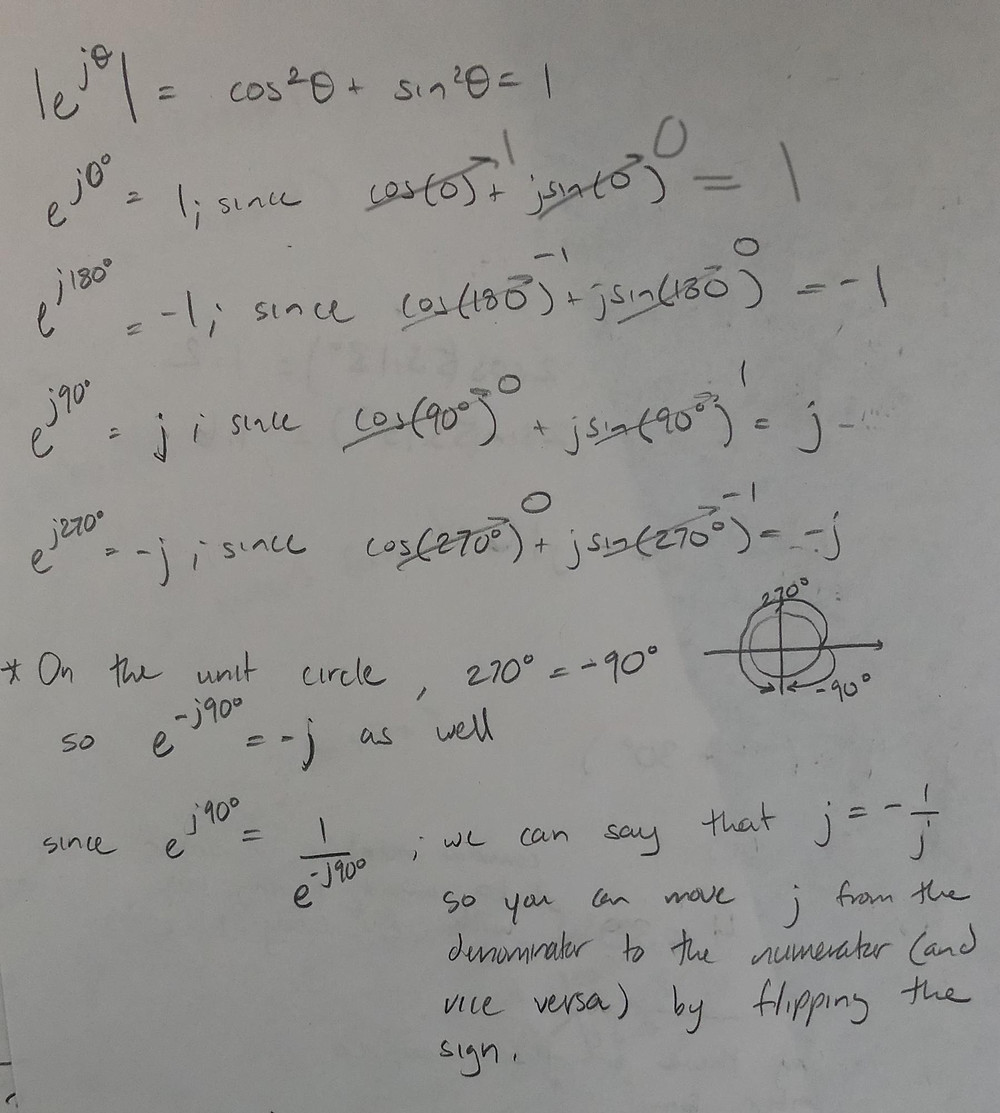 |e^{jθ}| = cos²θ + sin²θ = 1
e^{j0°} = 1; since cos(0)^1 + jsin(0)^0 = 1
e^{j180°} = -1; since cos(180°)^-1 + jsin(180°)^0 = -1
e^{j90°} = j; since cos(90°)^0 + jsin(90°)^1 = j
e^{j270°} = -j; since cos(270°)^0 + jsin(270°)^-1 = -j
270°
* On the unit circle, 270° = -90°
-90°
so e^{-j90°} = -j as well
since e^{j90°} = 1/e^{-j90°}; we can say that j = -1/j
so you can move j from the
denominator to the numerator (and
vice versa) by flipping the
sign.